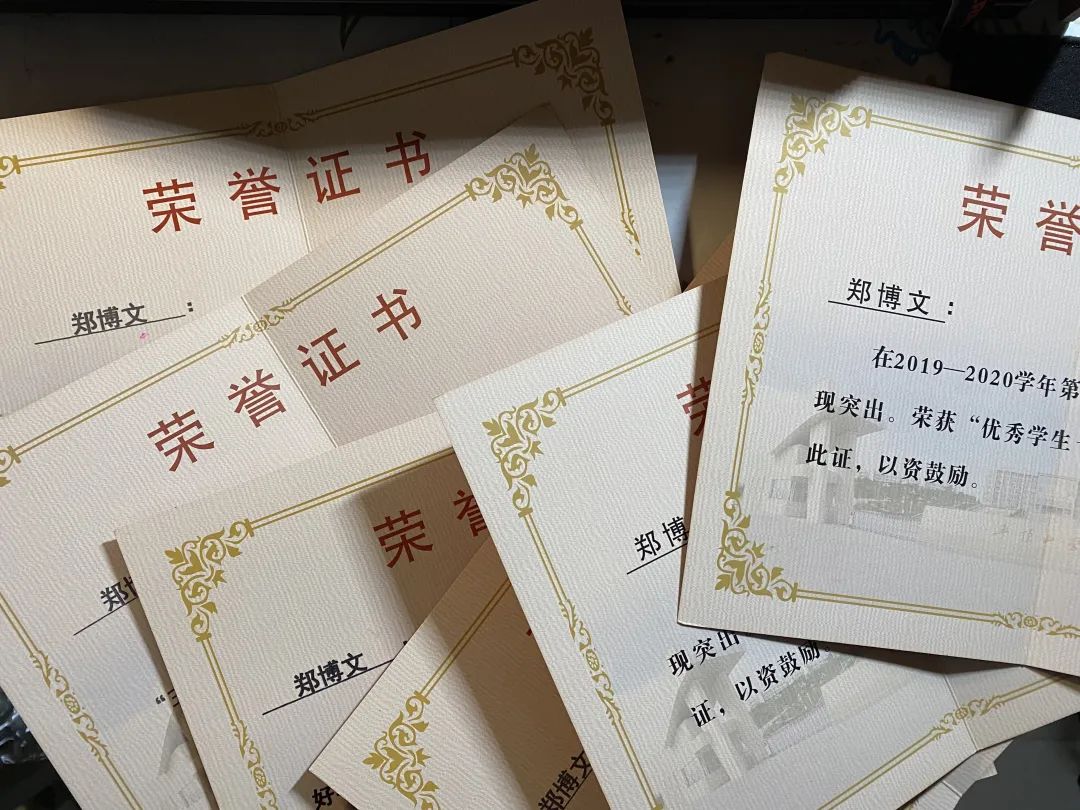 荣誉证书
郑博文：
荣誉证书
郑博
“三
荣誉
郑博文
好
郑博文
荣
郑博
现突出
证，以资鼓励。
荣誉
郑博文：
在2019—2020学年第
现突出。荣获“优秀学生
此证，以资鼓励。